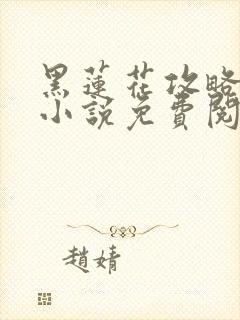 黑蓮花攻略
小說免費閱
趙婧